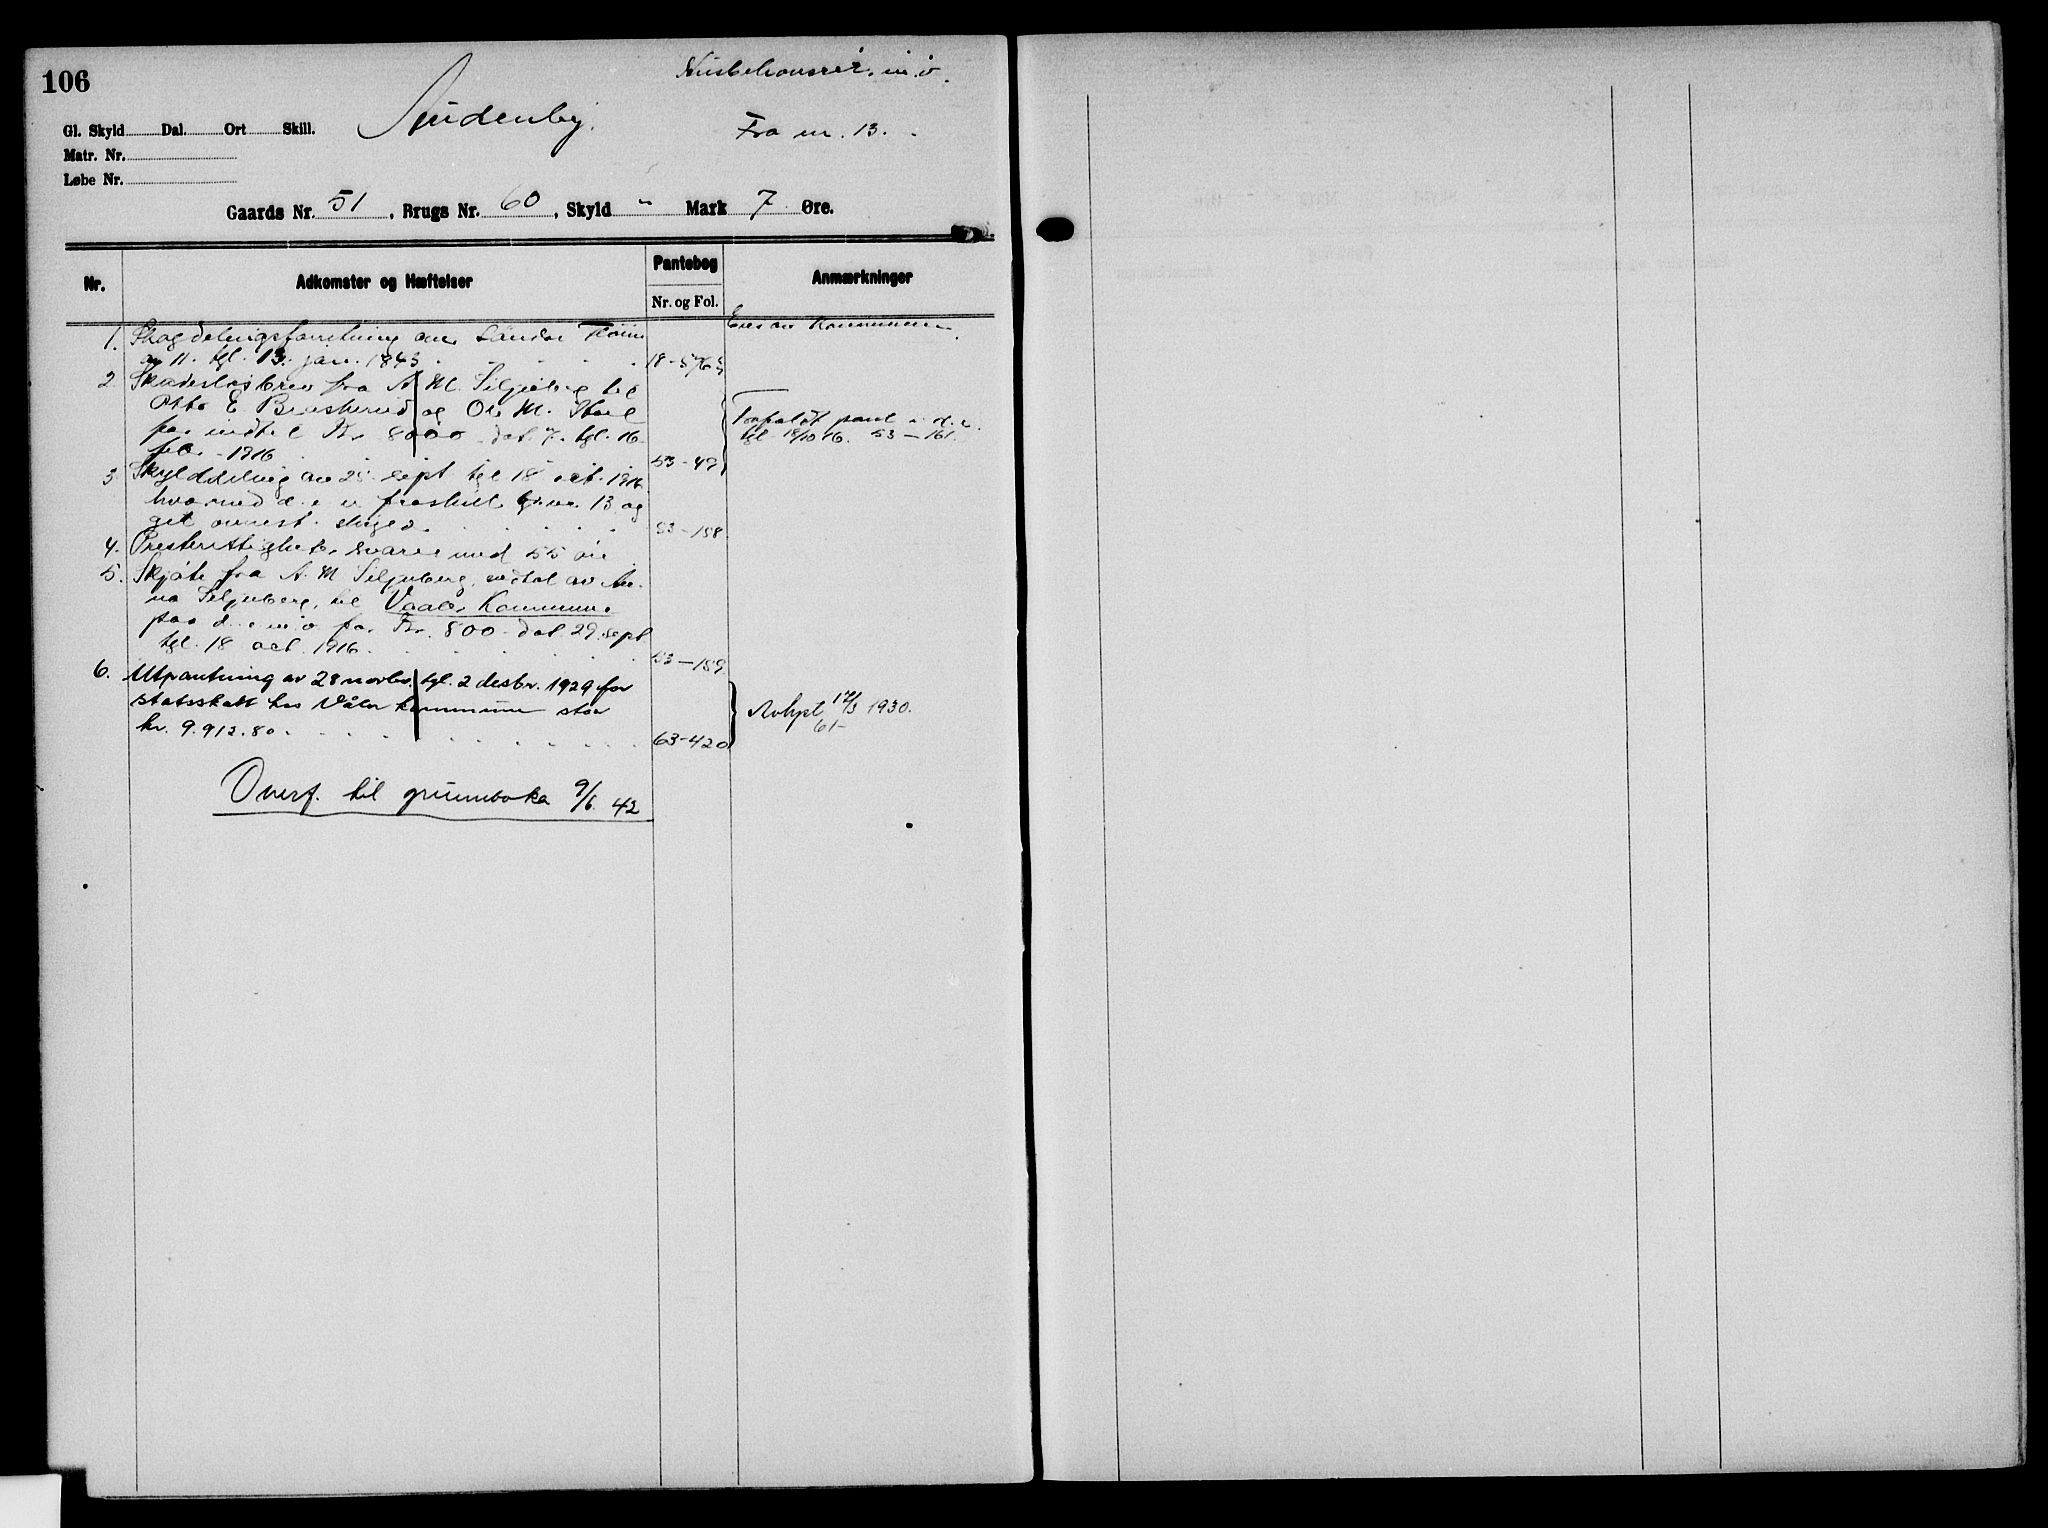 106
Gl. Skyld Dal. Ort Skill.
Matr. Nr.
Løbe Nr.
m.v.
Fra nr. 13.
Gaards Nr. 51, Brugs Nr. 60, Skyld " Mark 7 Øre.
Nr. Adkomster og Hæftelser Pantebog Anmærkninger
Nr. og Fol.
1. Skogdelingsforretning over Søndre
11. tgl. 13. jan. 1843 18-576
Eies av Kommunen.
2. Skadesløsbrev fra A. M. Siljuberg til
Otto E. Braskerud og Ole M.
for indtil Kr. 8000 dat. 7. tgl. 16
febr. 1916 53-49
Forfaldt pant i d. e.
tgl. 18/10 16. 53-161.
3. Skylddeling av 25 sept tgl 18 oct. 1916
hvorved d. e. er fraskilt br. nr. 13 og
git 53-158
4. Presterettighet svares med 55 øre
5. Skjøte fra A. M. Siljuberg, vedtat av An-
na Siljuberg, til Vaaler Kommune
paa d. e. m. v. for Kr. 800. dat. 29. sept
tgl. 18 oct. 1916. 53-159
6. Utpantning av 28 novbr. tgl. 2 desbr. 1929 for
statsskatt hos Våler kommune stor
kr. 9.912.80 63-420
Avlyst 17/3 1930.
61-
Overf. til grunnboka 9/6. 42